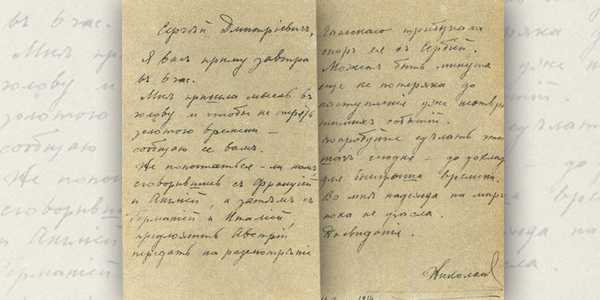 Сергѣй Дмитріевичъ,
Я васъ приму завтра
въ 6 час.
Мнѣ пришла мысль въ
голову и чтобы не терять
золотого времени —
сообщаю ее вамъ.
Не попытаться-ли намъ,
сговорившись съ Франціей
и Англіей, а затѣмъ съ
Германіей и Италіей
предложить Австріи
передать на разсмотрѣніе
Гаагскаго трибунала
споръ ея съ Сербіей.
Можетъ быть минута
еще не потеряна до
наступленія уже неотвра-
тимыхъ событій.
Попробуйте сдѣлать этотъ
шагъ сегодня — до доклада
для выигрыша времени.
Во мнѣ надежда на миръ
пока не угасла.
До свиданья.
Николай
1914